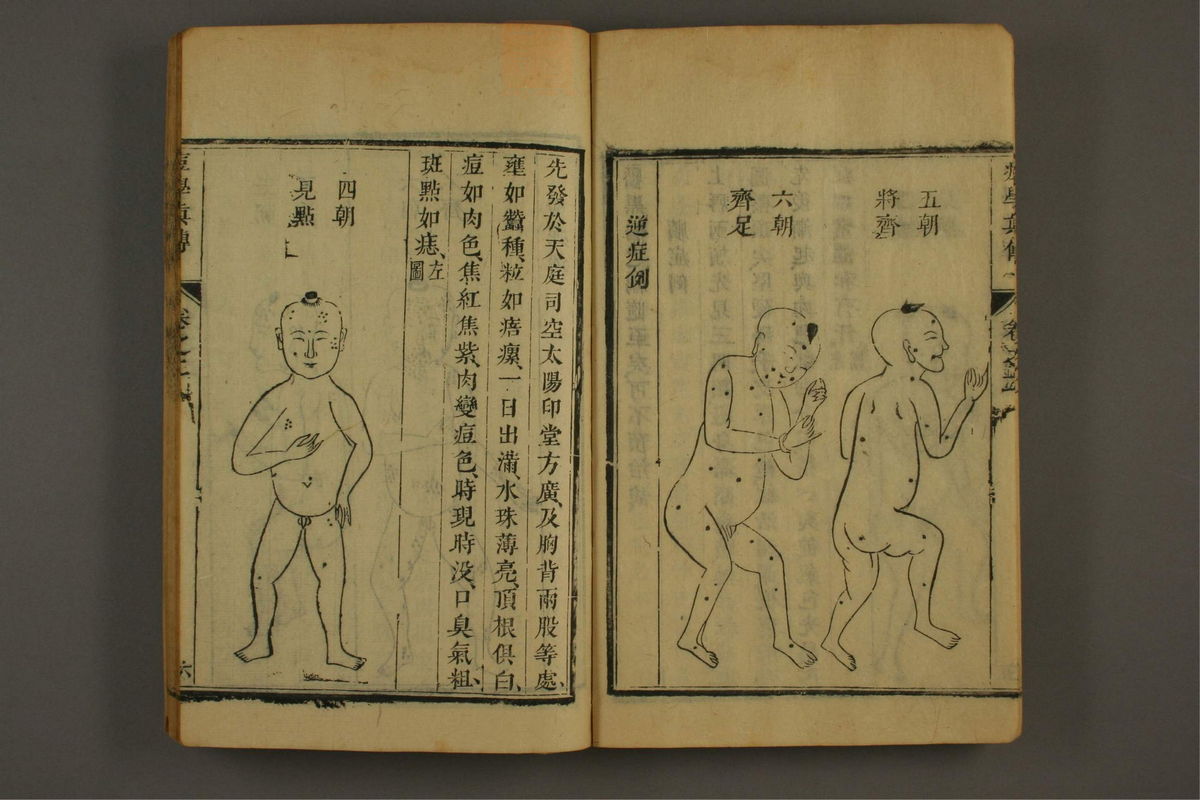 五朝
將齊
六朝
齊足
逆症例
先發於天庭司空太陽印堂方廣、及胸背兩股等處、
壅如蠶種、粒如痦瘰、一日出滿、水珠薄亮、頂根俱白、
痘如肉色、焦紅焦紫、肉變痘色、時現時沒、口臭氣粗、
斑點如痣、左圖
四朝
見點
痘學真傳
卷之二
六